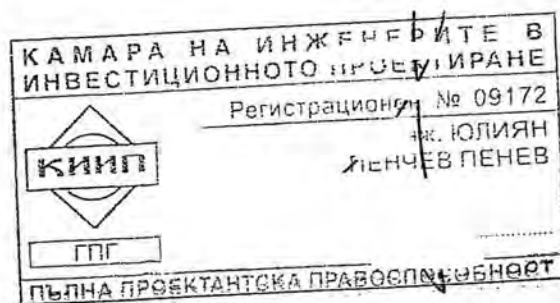 КАМАРА НА ИНЖЕНЕРИТЕ В
ИНВЕСТИЦИОННОТО ПРОЕКТИРАНЕ
Регистрационен № 09172
инж. ЮЛИЯН
ПЕНЕВ
КИИП
ГПГ
ПЪЛНА ПРОЕКТАНТСКА ПРАВОСПОСОБНОСТ